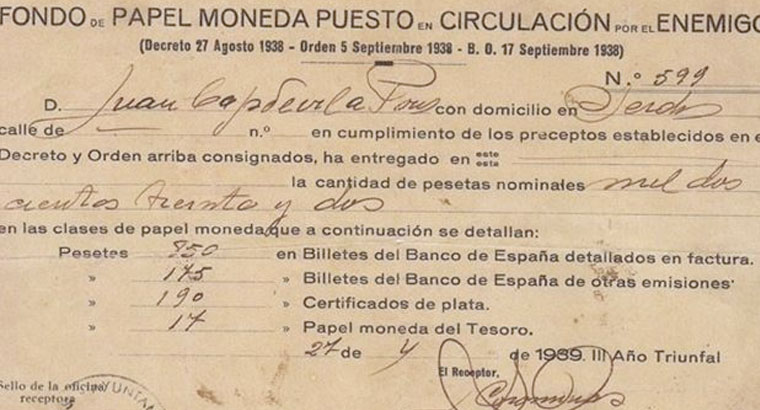 FONDO DE PAPEL MONEDA PUESTO EN CIRCULACIÓN POR EL ENEMIGO
(Decreto 27 Agosto 1938 - Orden 5 Septiembre 1938 - B. O. 17 Septiembre 1938)
N.º 599
D. Juan Capdevila Pons con domicilio en
calle de — n.º en cumplimiento de los preceptos establecidos en e
Decreto y Orden arriba consignados, ha entregado en este
esta
la cantidad de pesetas nominales mil dos
cientos treinta y dos
en las clases de papel moneda que a continuación se detallan:
Pesetes 850 en Billetes del Banco de España detallados en factura.
» 175 » Billetes del Banco de España de otras emisiones
» 190 » Certificados de plata.
» 17 » Papel moneda del Tesoro.
27 de 4 de 1939. III Año Triunfal
El Receptor,
Sello de la oficina
receptora
AYUNTAM